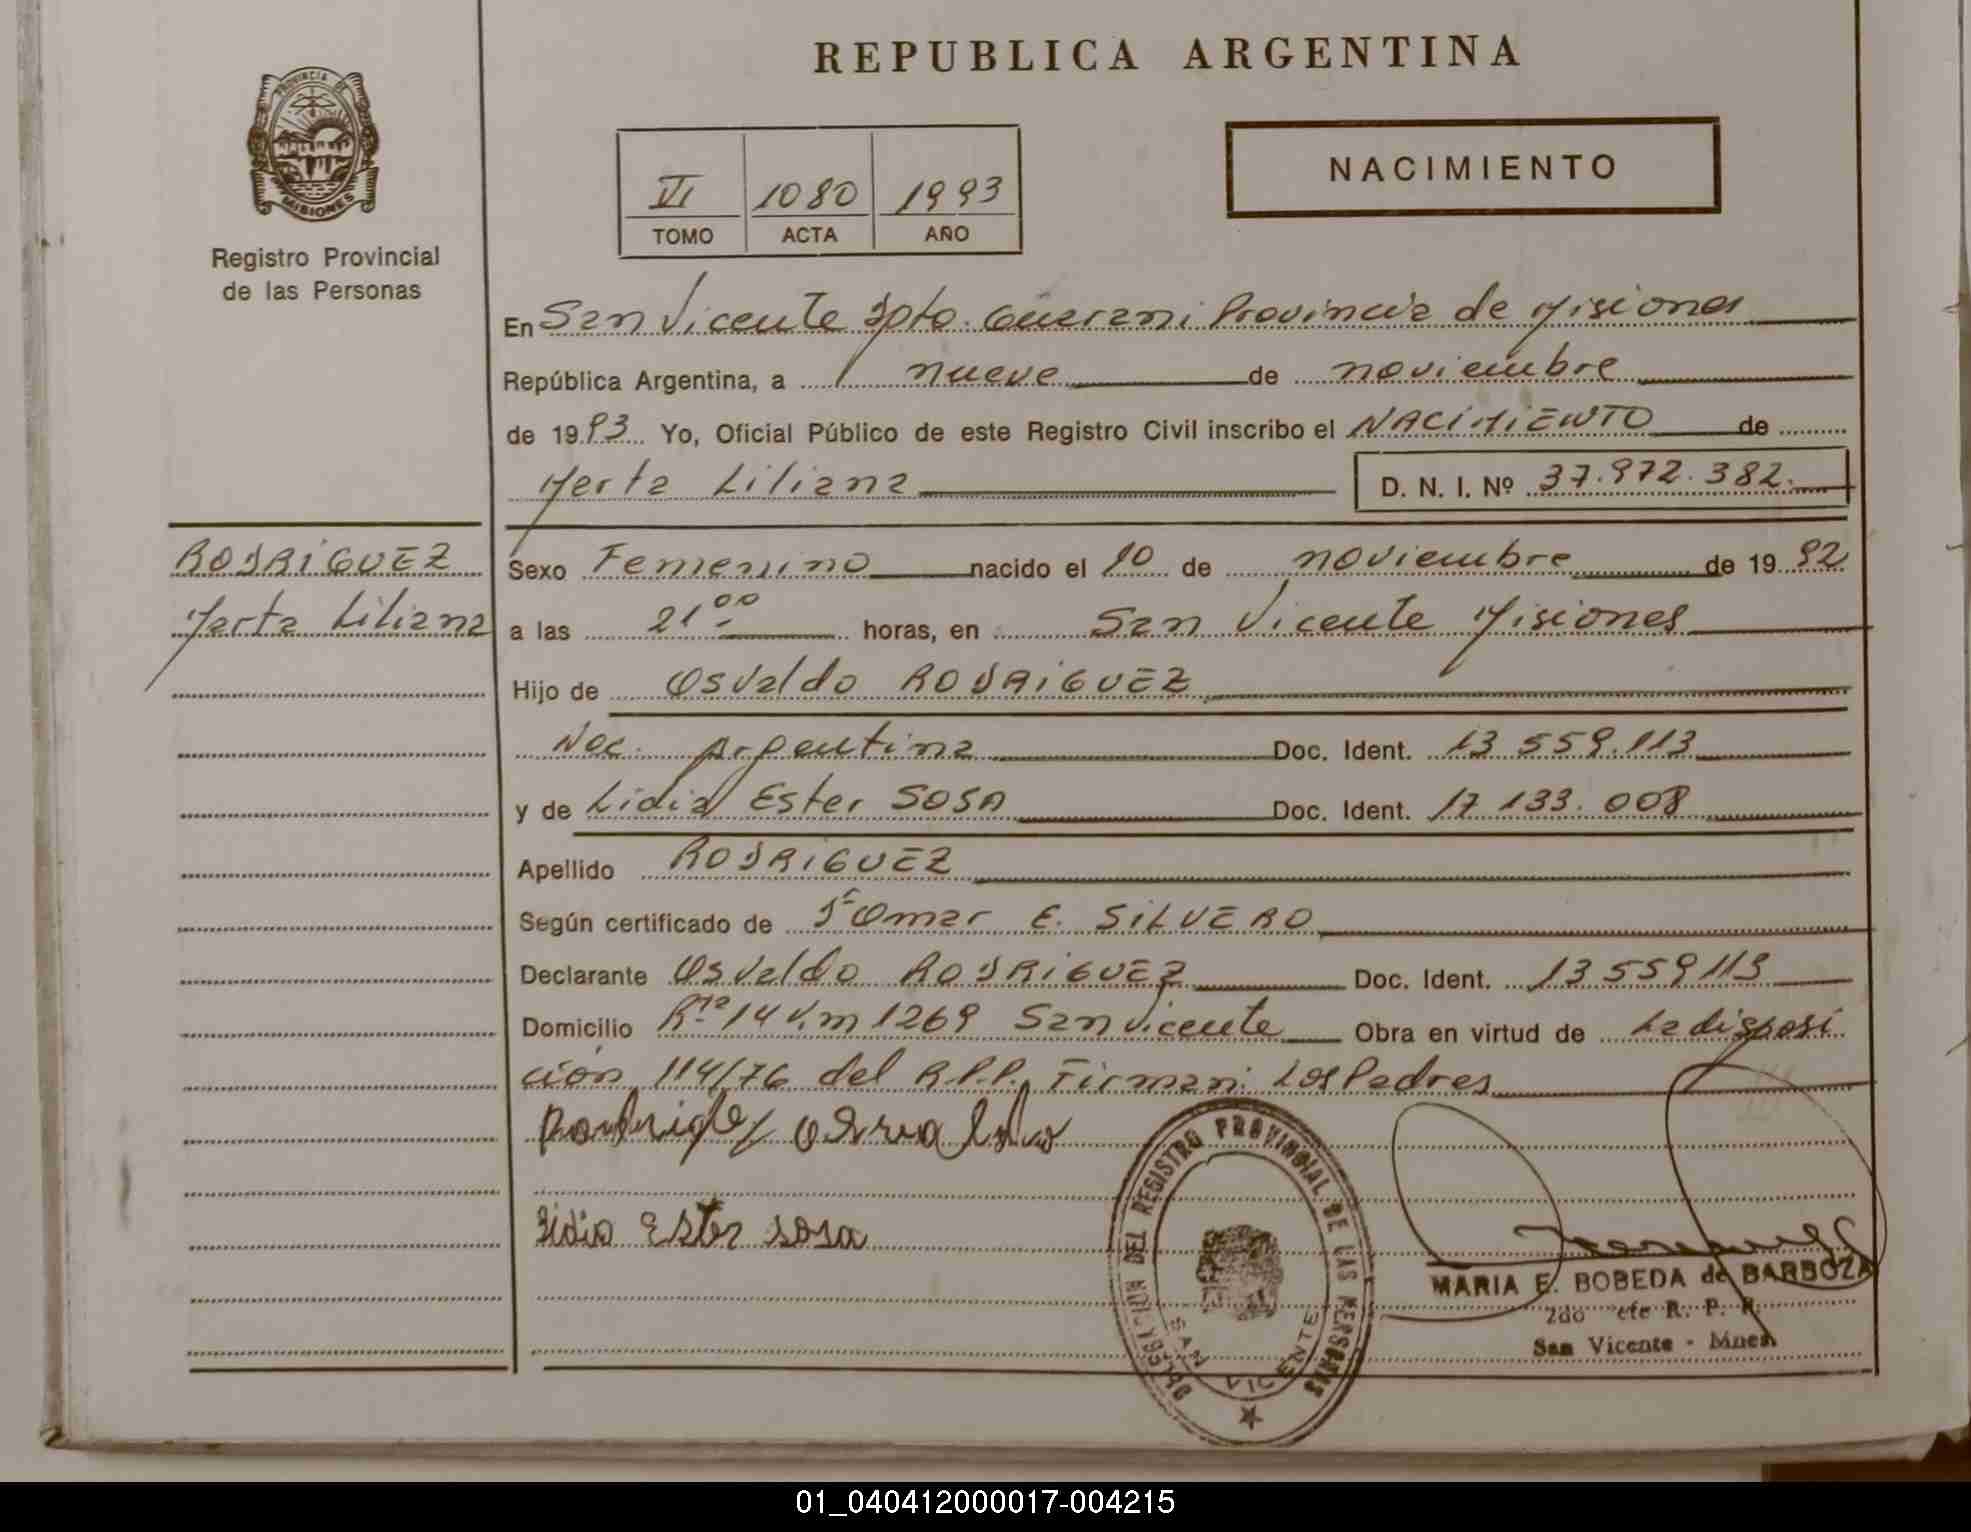 REPUBLICA ARGENTINA
PROVINCIA DE
MISIONES
Registro Provincial
de las Personas
VI 1080 1993
TOMO ACTA AÑO
NACIMIENTO
En San Vicente Dpto. Guarani Provincia de Misiones
República Argentina, a nueve de noviembre
de 1993 Yo, Oficial Público de este Registro Civil inscribo el NACIMIENTO de
Marta Liliana D. N. I. Nº 37.972.382.
RODRIGUEZ
Marta Liliana
Sexo Femenino nacido el 10 de noviembre de 1992
a las 21 00 horas, en San Vicente Misiones
Hijo de Osvaldo RODRIGUEZ
Nac. Argentina Doc. Ident. 13 559.113
y de Lidia Ester SOSA Doc. Ident. 17 133.008
Apellido RODRIGUEZ
Según certificado de Dr Omar E. SILVERO
Declarante Osvaldo RODRIGUEZ Doc. Ident. 13 559 113
Domicilio Rta 14 Km 1269 San Vicente Obra en virtud de La disposi
ción 114/76 del R.P.P. Firman: Los Padres
Lidia Ester Sosa
DELEGACION DEL REGISTRO PROVINCIAL DE LAS PERSONAS
SAN VICENTE
MARIA E. BOBEDA de BARBOZA
2do R. P. P.
San Vicente - Mnes.
01_040412000017-004215